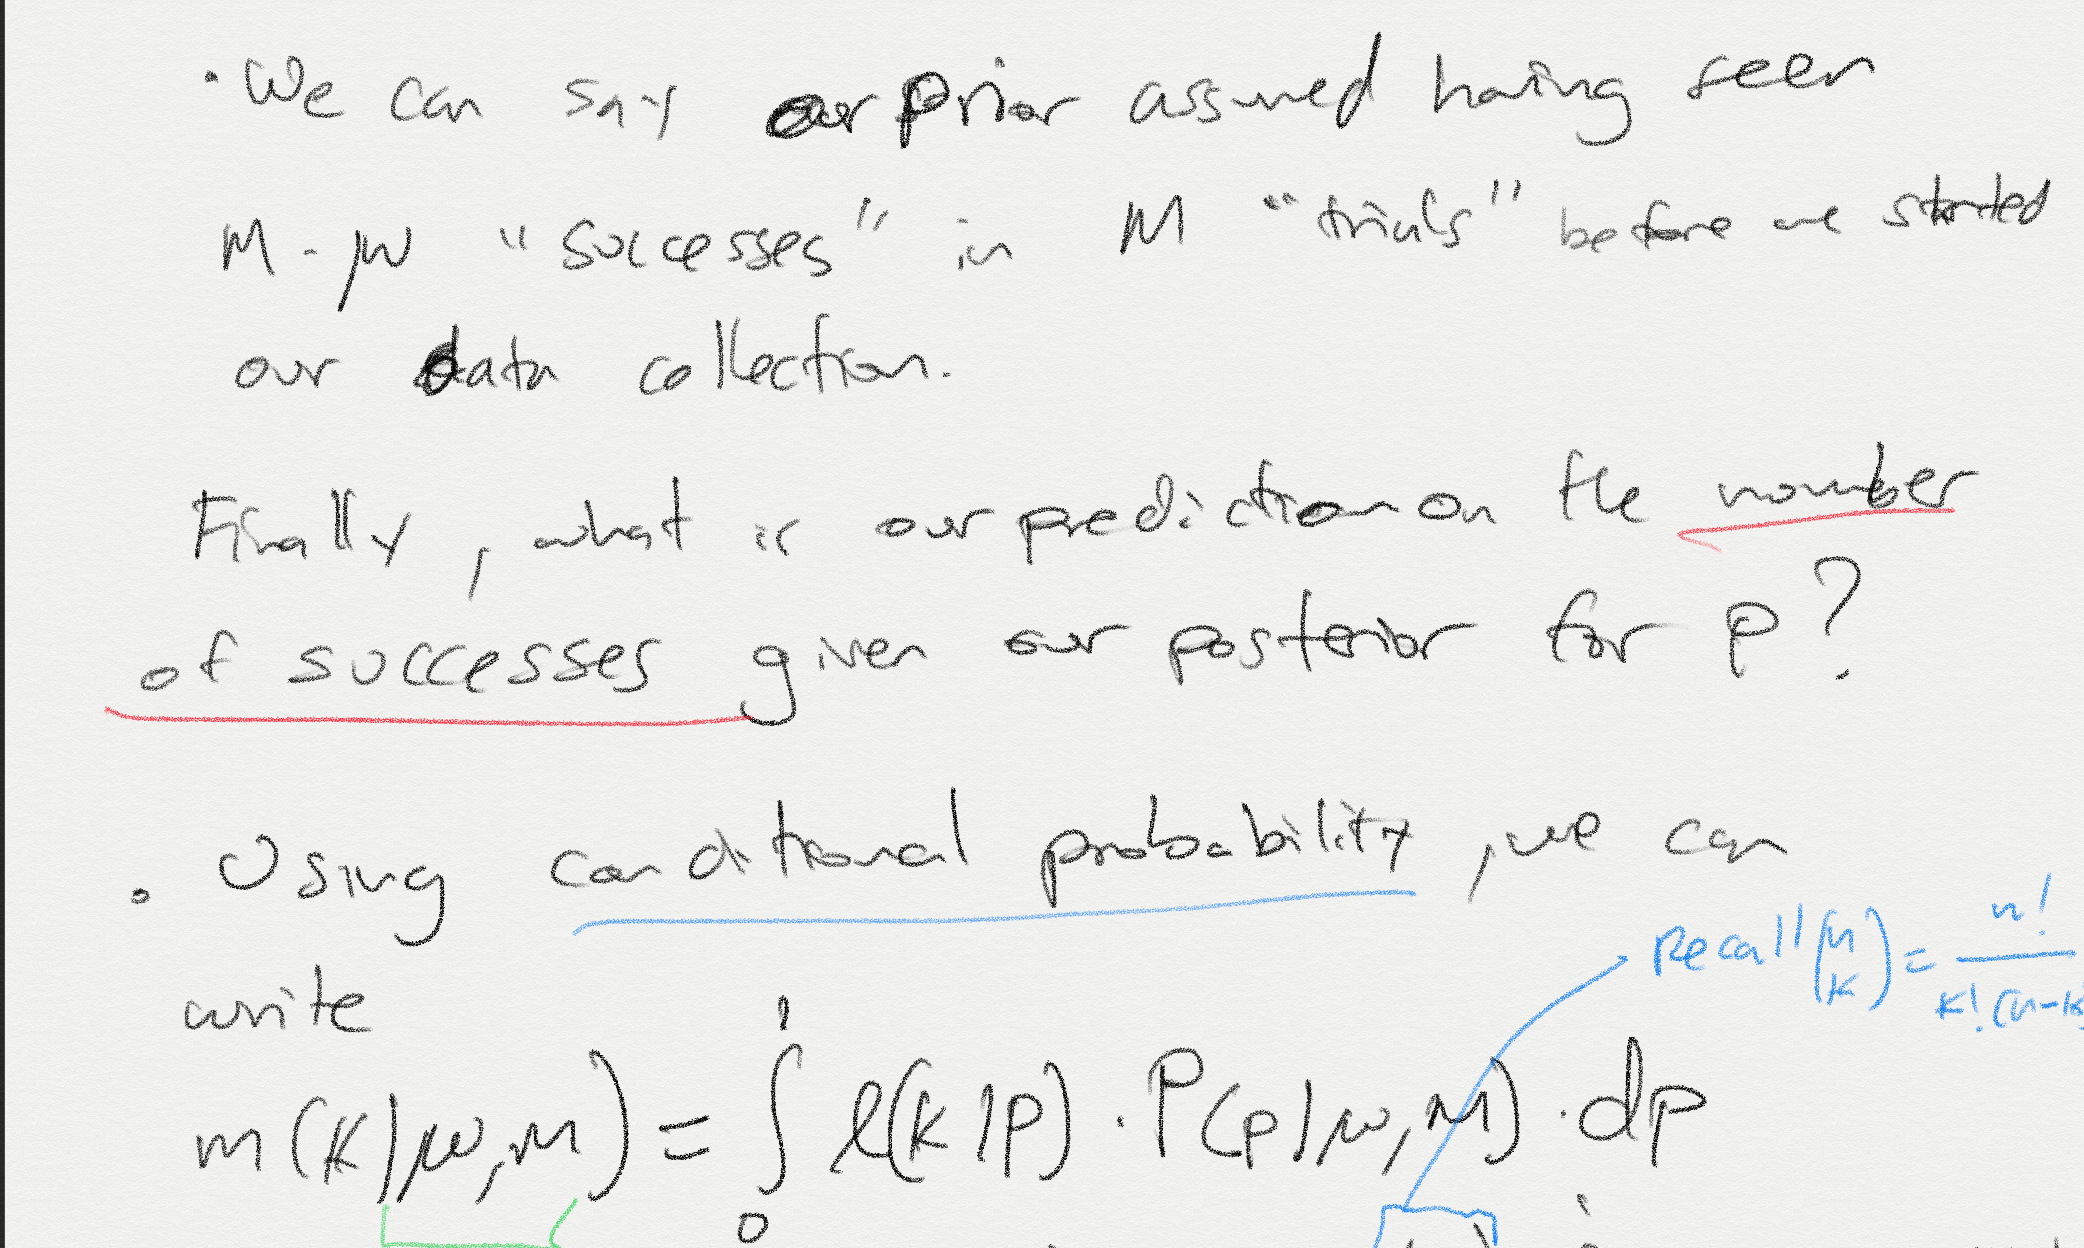 · We can say our prior assumed having seen
M · μ "successes" in M "trials" before we started
our data collection.
Finally, what is our prediction on the number
of successes given our posterior for p?
· Using conditional probability, we can
write
recall (n k) = n! / k!(n-k)
m(k|μ,M) = ∫₀¹ l(k|p) · P(p|μ,M) · dp